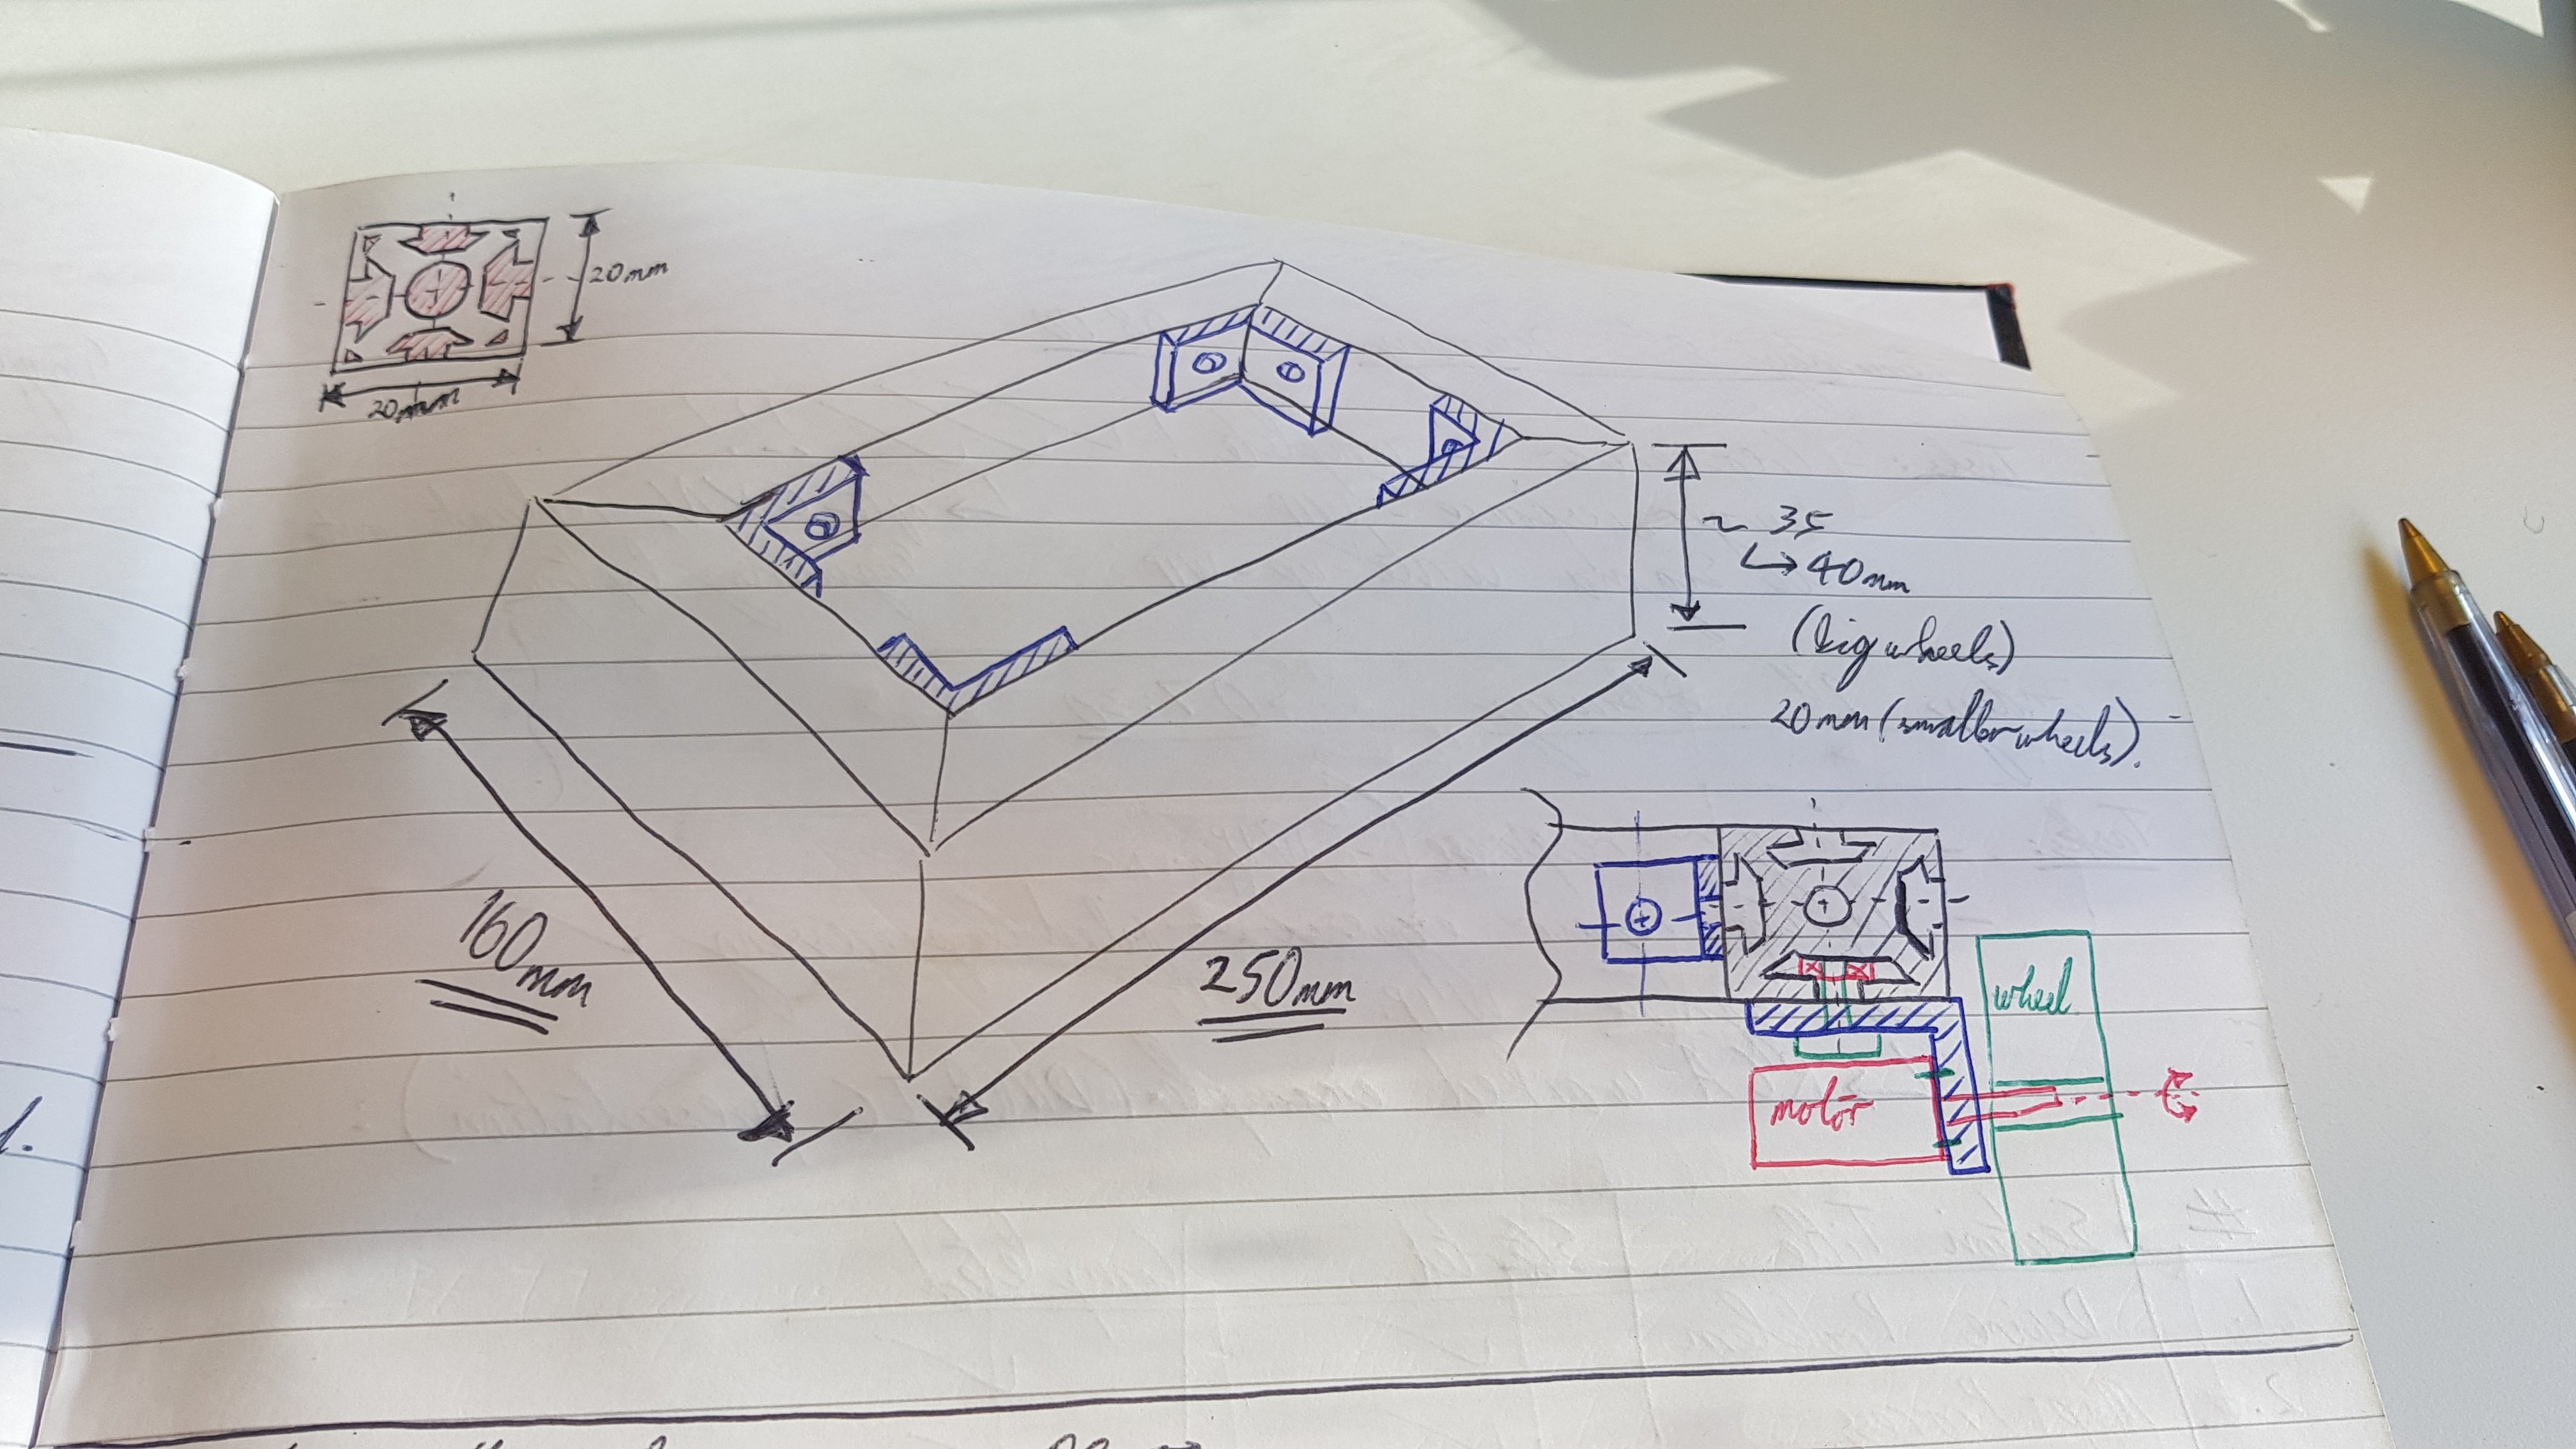 20mm
20mm
~ 35
↳ 40mm
(big wheels)
20mm (smaller wheels).
160mm
250mm
wheel
motor